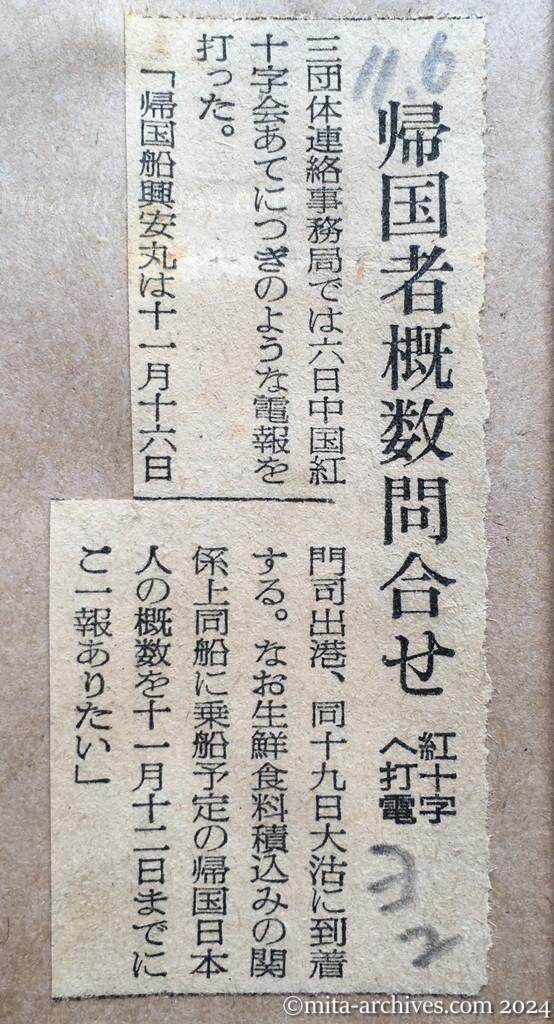 11.6
帰国者概数問合せ
紅十字
へ打電
ヨ2
三団体連絡事務局では六日中国紅
十字会あてにつぎのような電報を
打った。
「帰国船興安丸は十一月十六日
門司出港、同十九日大沽に到着
する。なお生鮮食料積込みの関
係上同船に乗船予定の帰国日本
人の概数を十一月十二日までに
ご一報ありたい」
©mita-archives.com 2024